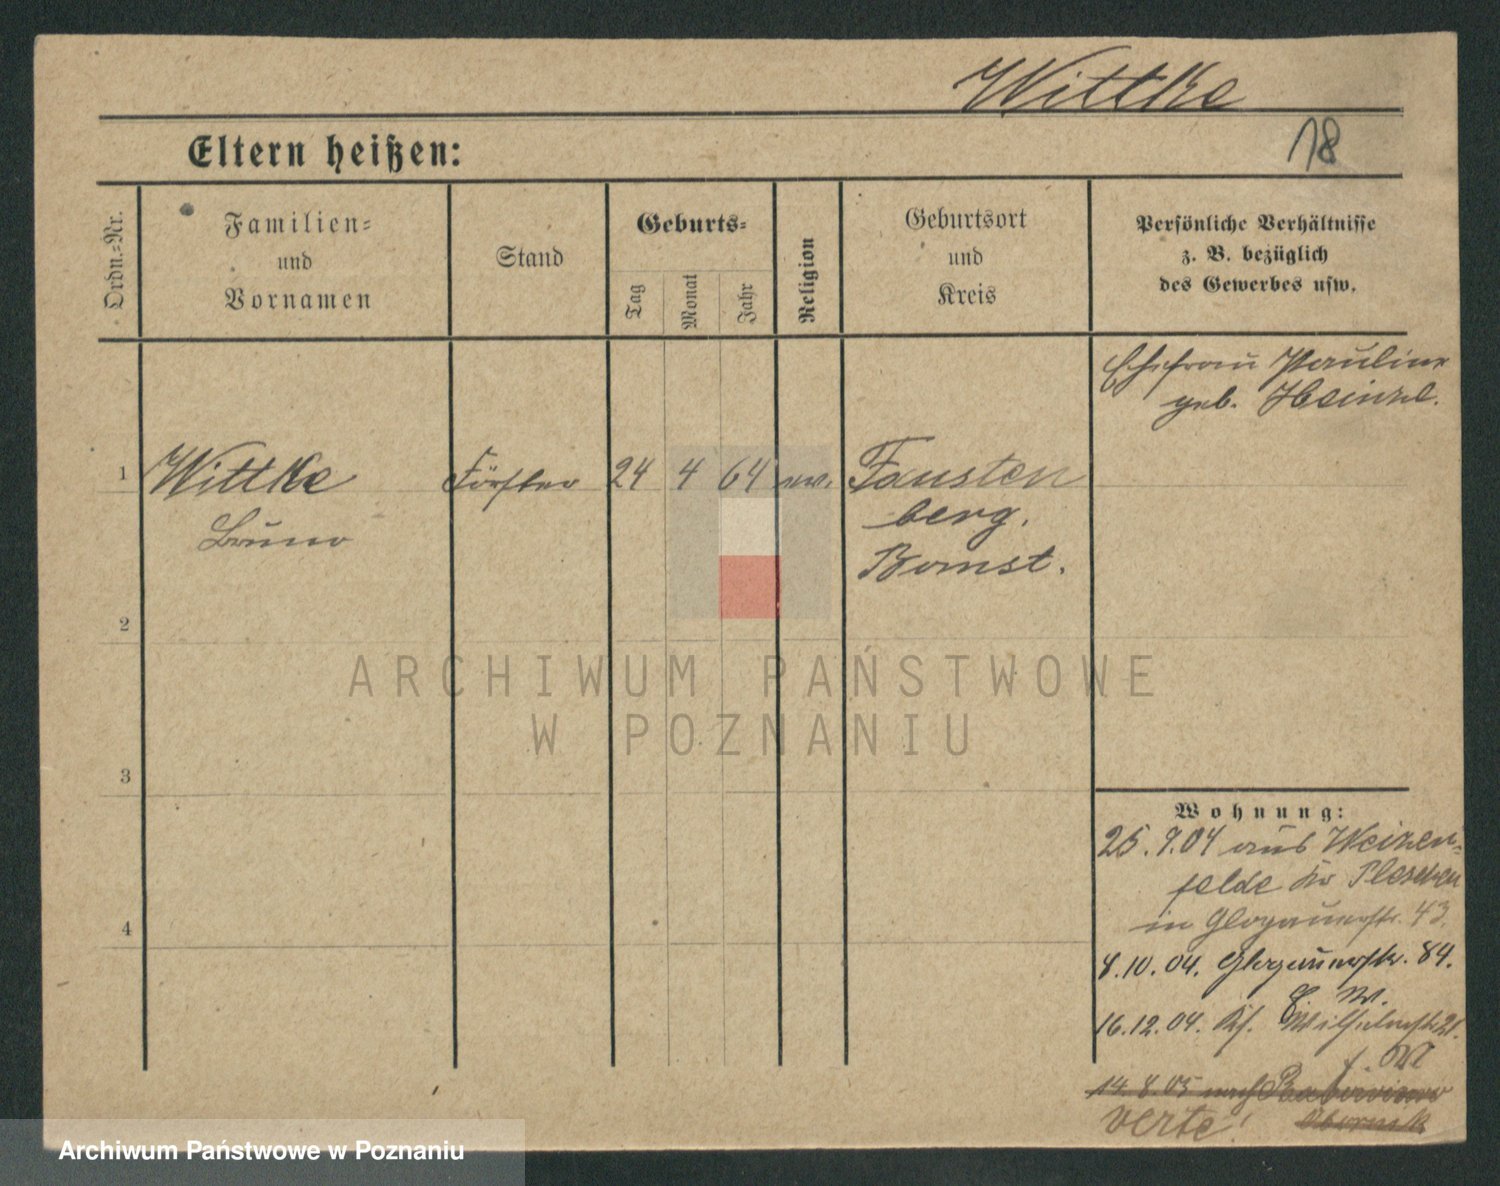 Wittke
18
Eltern heißen:
Ordn.-Nr.
Familien-
und
Vornamen
Stand
Geburts-
Tag
Monat
Jahr
Religion
Geburtsort
und
Kreis
Persönliche Verhältnisse
z. B. bezüglich
des Gewerbes usw.
Ehefrau Pauline
geb. Heinzel.
1
Wittke Förster 24 4 64 ev. Fausten
Bruno
berg.
Bomst.
2
3
4
Wohnung:
25.9.04 aus Weizen-
felde Kr Pleschen
in Glogauerstr. 43.
8.10.04. Glogauerstr. 84.
16.12.04. Wilhelmstr 21.
14.8.05 nach
verte! Obornik
ARCHIWUM PAŃSTWOWE
W POZNANIU
Archiwum Państwowe w Poznaniu